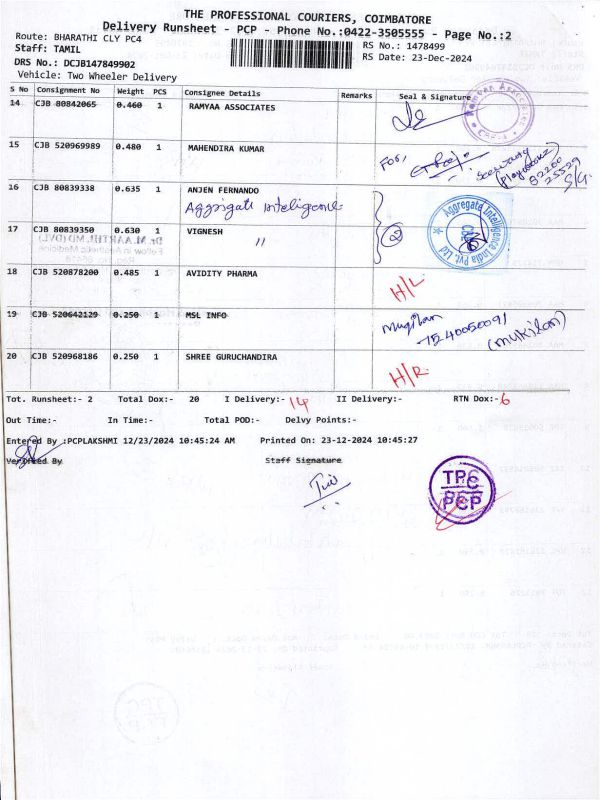 THE PROFESSIONAL COURIERS, COIMBATORE
Delivery Runsheet - PCP - Phone No.:0422-3505555 - Page No.:2
Route: BHARATHI CLY PC4
RS No.: 1478499
Staff: TAMIL
RS Date: 23-Dec-2024
DRS No.: DCJB147849902
Vehicle: Two Wheeler Delivery
S No Consignment No Weight PCS Consignee Details Remarks Seal & Signature
14 CJB 80842065 0.460 1 RAMYAA ASSOCIATES
15 CJB 520969989 0.480 1 MAHENDIRA KUMAR For,
16 CJB 80839338 0.635 1 ANJEN FERNANDO
Aggrigate Inteligence
Aggregate Intelligence India Pvt. Ltd
17 CJB 80839350 0.630 1 VIGNESH
" 2
18 CJB 520878200 0.485 1 AVIDITY PHARMA H/L
19 CJB 520642129 0.250 1 MSL INFO
Mugilan
7240050091
(mukilan)
20 CJB 520968186 0.250 1 SHREE GURUCHANDIRA H/R
Tot. Runsheet:- 2 Total Dox:- 20 I Delivery:- 14 II Delivery:- RTN Dox:- 6
Out Time:- In Time:- Total POD:- Delvy Points:-
Entered By :PCPLAKSHMI 12/23/2024 10:45:24 AM Printed On: 23-12-2024 10:45:27
Verified By Staff Signature
TPC
PCP